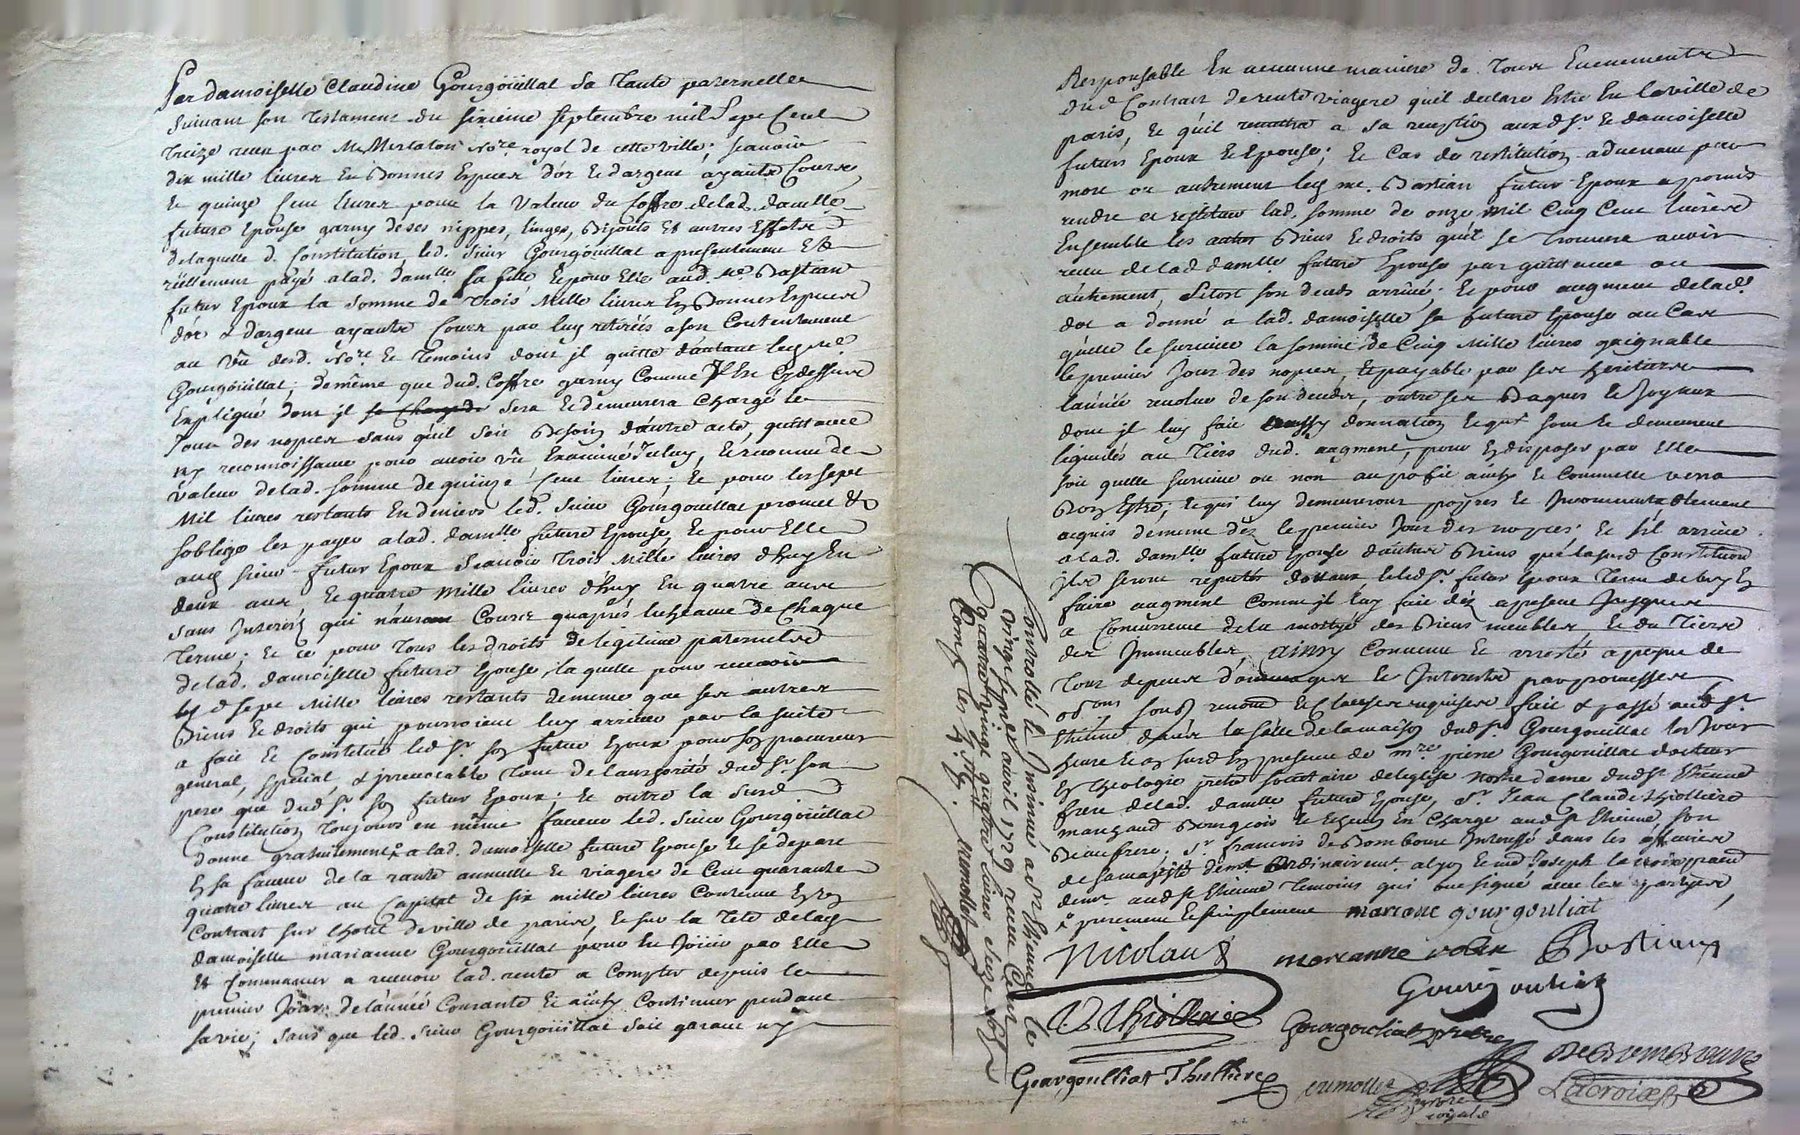 Par damoiselle Claudine Gourgoüillat sa Tante paternelle
suivant son Testament du sixieme septembre mil sept Cent
treize receu par Me Mertaton Nore. royal de cette ville; scavoir
dix mille livres En Bonnes Especes d'or Et d'argent ayants Cours,
Et quinze Cent livres pour la valeur du Coffre de lad. damlle.
future Epouse garny de ses nippes, linges, Bijouts Et autres Effets
de laquelle d. Constitution led. sieur Gourgoüillat a presentement Et
réellement payé a lad. damlle sa fille Et pour Elle aud. Me. Bastian
futur Epoux la somme de Trois Mille livres En Bonnes Especes
dor & dargent ayants Cours par luy retirées a son Contentement
au vû desd. Nore. Et Temoins dont il quitte d'autant led. sr.
Gourgoüillat; de même que dud. Coffre garny Comme Il Est Cy dessus
Expliqué dont il sera Et demeurera Chargé le
Jour des nopces sans qu'il soit Besoin dautre acte, quittance
ny reconnoissance pour avoir vû Examiné Iceluy, Et reconnu de
valeur de lad. somme de quinze Cent livres; Et pour les sept
Mil livres restants En deniers led. sieur Gourgouillat promet &
soblige les payer a lad. damlle future Epouse, Et pour Elle
aud. sieur futur Epoux scavoir Trois Mille livres d'huy En
deux ans Et quatre Mille livres d'huy En quatre ans
sans Interest qui n'auront Cours quaprés lescheance de Chaque
Terme; Et ce pour Tous les droits de legitime paternels
de lad. damoiselle future Epouse, laquelle pour recevoir
les d. sept Mille livres restants de meme que ses autres
Biens Et droits qui pourroient luy arriver par la suitte
a fait Et Constitué led. sr. son futur Epoux pour son procureur
general, special, & irrevocable Tant de l'authorité dud. sr. son
pere que dud. sr. son futur Epoux; Et outre la susd.
Constitution Toujours en même faveur led. sieur Gourgoüillat
donne gratuitement a lad. damoiselle future Epouse Et se depart
En sa faveur de la rante annuelle Et viagere de Cent quarante
quatre livres au Capital de six mille livres Contenue En son
Contrat sur lhotel de ville de paris, Et sur la Tete de lad.
damoiselle marianne Gourgoüillat pour En Joüir par Elle
Et Commencer a recevoir lad. rente a Compter depuis le
premier Jour de l'année Courante Et ainsy Continuer pendant
sa vie; sans que led. sieur Gourgoüillat soit garant ny
Responsable En aucunne maniere de Tous Evenements
dud. Contrat de rente viagere quil declare Estre En la ville de
paris, Et qu'il remettra a sa reception auxd. sr. Et damoiselle
futurs Epoux Et Epouse; Et Cas de restitution advenant par
mort ou autrement led. me. Bastian futur Epoux a promis
rendre et restituer lad. somme de onze Mil Cinq Cent livres
Ensemble les autres Biens Et droits quil se Trouvera avoir
receu de lad. damlle. future Epouse par quittance ou
autrement, sitost son deceds arrivé; Et pour augment de lad.
dot a donné a lad. damoiselle sa future Epouse au Cas
qu'elle le survive la somme de Cinq Mille livres gaignable
le premier Jour des nopces, Et payable par ses heritiers
l'année revolue de son deceds, outre ses Bagues Et Joyaux
dont il luy fait aussy donnation Et qui sont Et demeurent
liquidés au Tiers dud. augment, pour En disposer par Elle
soit quelle survive ou non au profit ainsy Et Comm'elle verra
Bon Estre; Et qui luy demeureront propres Et Incommutablement
acquis de meme dez le premier Jour des nopces; Et sil arrive
a lad. damlle. future Epouse dautres Biens que la susd. Constitution
Ils seront reputés dottaux, Et led. sr. futur Epoux Tenu de luy En
faire augment Comme il luy fait déz apresent Jusques
a Concurrence de la moitié des Biens meubles Et du Tiers
des Immeubles, ainsy Convenu Et arresté a peine de
Tous depens domages Et Interests par promesses,
obons. soud. renon. Et Clauses requises fait & passé aud. st.
Etienne dans la salle de la maison dud. sr. Gourgouillat les Jour
En presence de mre. pierre Gourgouillat docteur
En Theologie pretre societaire de leglise notre dame dud. st. Etienne
frere de lad. damlle future Epouse, sr. Jean Claude Thiolliere
marchand Bourgeois Et Echevin En Charge aud. st. Etienne son
Beaufrere, sr. francois de Bombourg Interessé dans les affaires
de sa majesté demt. ordinairement a lyon Et md. Joseph lacroix praud
demt. aud. st. Etienne Temoins qui ont signé avec les parties,
purement Et simplement mariane gourgouliat
Nicolaud marianne Bastian
Gourgouliat
Thiolliere Gourgouliat pretre
De Bombourg
Gourgoulliat Thiolliere rumollet Lacroix
nore
royale
Controllé Et Insinué a st. Etienne le
vingt sept avril 1729 receu Cent
quatre vingt quatorze livres seize sols
rumollet